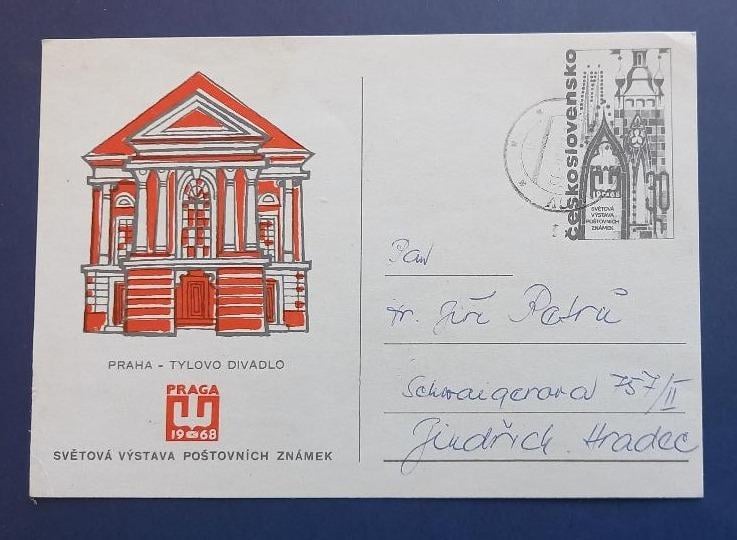 PRAHA - TYLOVO DIVADLO
PRAGA
1968
SVĚTOVÁ VÝSTAVA POŠTOVNÍCH ZNÁMEK
československo
1968
SVĚTOVÁ
VÝSTAVA
POŠTOVNÍCH
ZNÁMEK
30
Pan
Jiří Petrů
Schwaigerova 757/II
Jindřich. Hradec